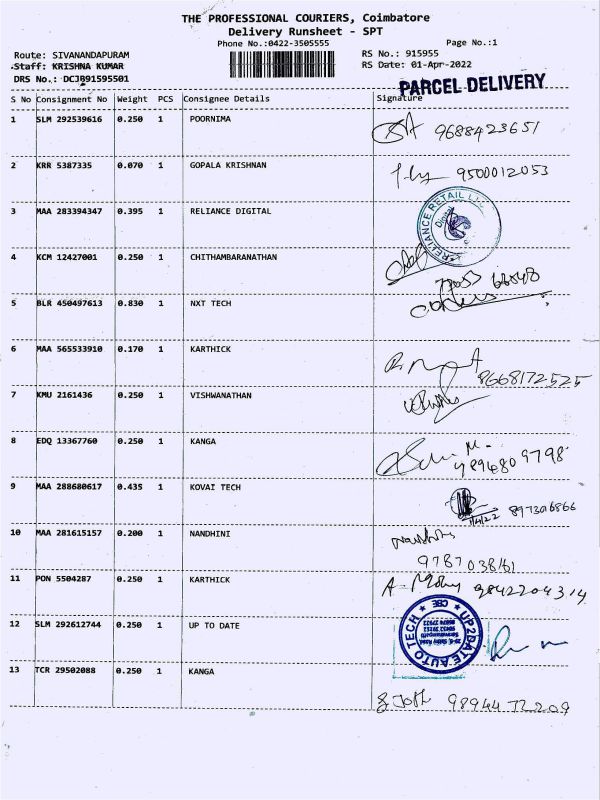 THE PROFESSIONAL COURIERS, Coimbatore
Delivery Runsheet - SPT
Phone No.:0422-3505555
Page No.:1
Route: SIVANANDAPURAM
RS No.: 915955
Staff: KRISHNA KUMAR
RS Date: 01-Apr-2022
DRS No.: DCJ091595501
PARCEL DELIVERY
S No Consignment No Weight PCS Consignee Details Signature
1 SLM 292539616 0.250 1 POORNIMA 9688423651
2 KRR 5387335 0.070 1 GOPALA KRISHNAN 9500012053
3 MAA 283394347 0.395 1 RELIANCE DIGITAL
RELIANCE RETAIL
Digital
4 KCM 12427001 0.250 1 CHITHAMBARANATHAN
5 BLR 450497613 0.830 1 NXT TECH
6 MAA 565533910 0.170 1 KARTHICK 8668172525
7 KMU 2161436 0.250 1 VISHWANATHAN
8 EDQ 13367760 0.250 1 KANGA 9894809798
9 MAA 288680617 0.435 1 KOVAI TECH
1/4/22
10 MAA 281615157 0.200 1 NANDHINI
11 PON 5504287 0.250 1 KARTHICK 9842204314
12 SLM 292612744 0.250 1 UP TO DATE
UP2DATE AUTO TECH
CBE
13 TCR 29502088 0.250 1 KANGA
9894472209